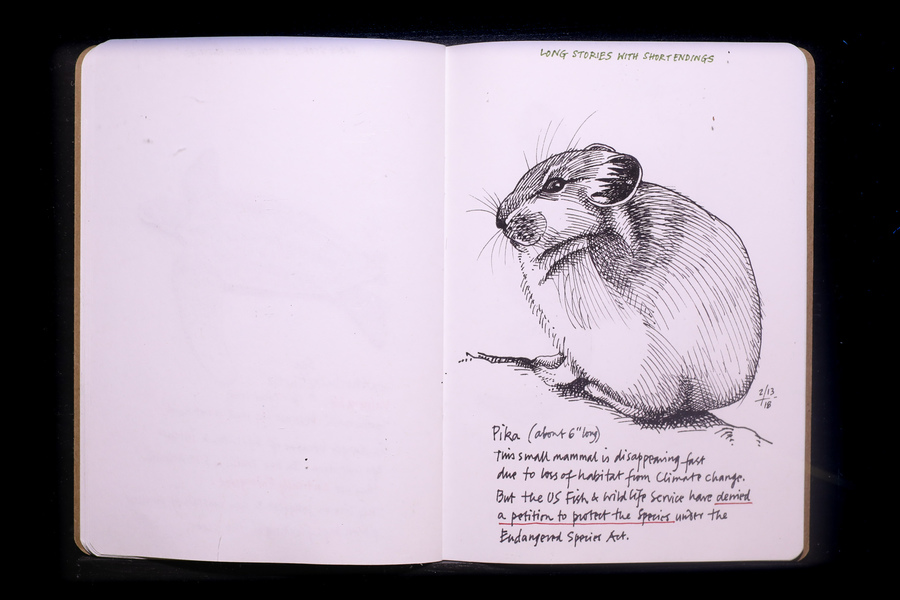 LONG STORIES WITH SHORT ENDINGS
2/13
18
Pika (about 6" long)
This small mammal is disappearing fast
due to loss of habitat from Climate change.
But the US Fish & Wildlife Service have denied
a petition to protect the Species under the
Endangered Species Act.